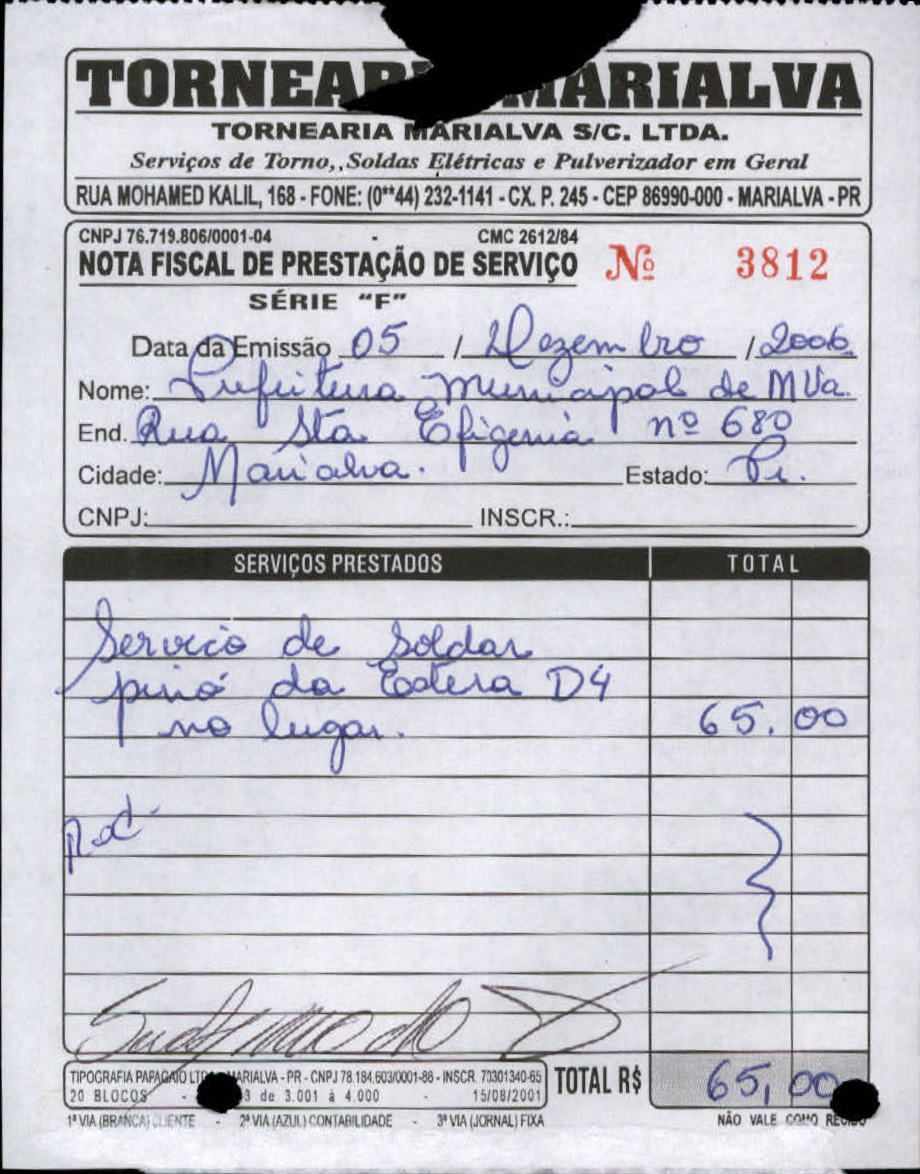 TORNEARI MARIALVA
TORNEARIA MARIALVA S/C. LTDA.
Serviços de Torno,,Soldas Elétricas e Pulverizador em Geral
RUA MOHAMED KALIL, 168 - FONE: (0**44) 232-1141 - CX. P. 245 - CEP 86990-000 - MARIALVA - PR
CNPJ 76.719.806/0001-04 - CMC 2612/84
NOTA FISCAL DE PRESTAÇÃO DE SERVIÇO Nº 3812
SÉRIE "F"
Data da Emissão 05 / Dezembro / 2006
Nome: Prefeitura Municipal de MVa.
End. Rua Sta Efigenia nº 680
Cidade: Marialva. Estado: Pr.
CNPJ: INSCR.:
SERVIÇOS PRESTADOS TOTAL
Servico de Soldar
pino da Esteira D4
no lugar. 65,00
TIPOGRAFIA PAPAGAIO LTDA - MARIALVA - PR - CNPJ 78.184.603/0001-88 - INSCR. 70301340-65
20 BLOCOS - 3 de 3.001 á 4.000 - 15/08/2001
TOTAL R$ 65,00
1ª VIA (BRANCA) CLIENTE - 2ª VIA (AZUL) CONTABILIDADE - 3ª VIA (JORNAL) FIXA NÃO VALE COMO RECIBO